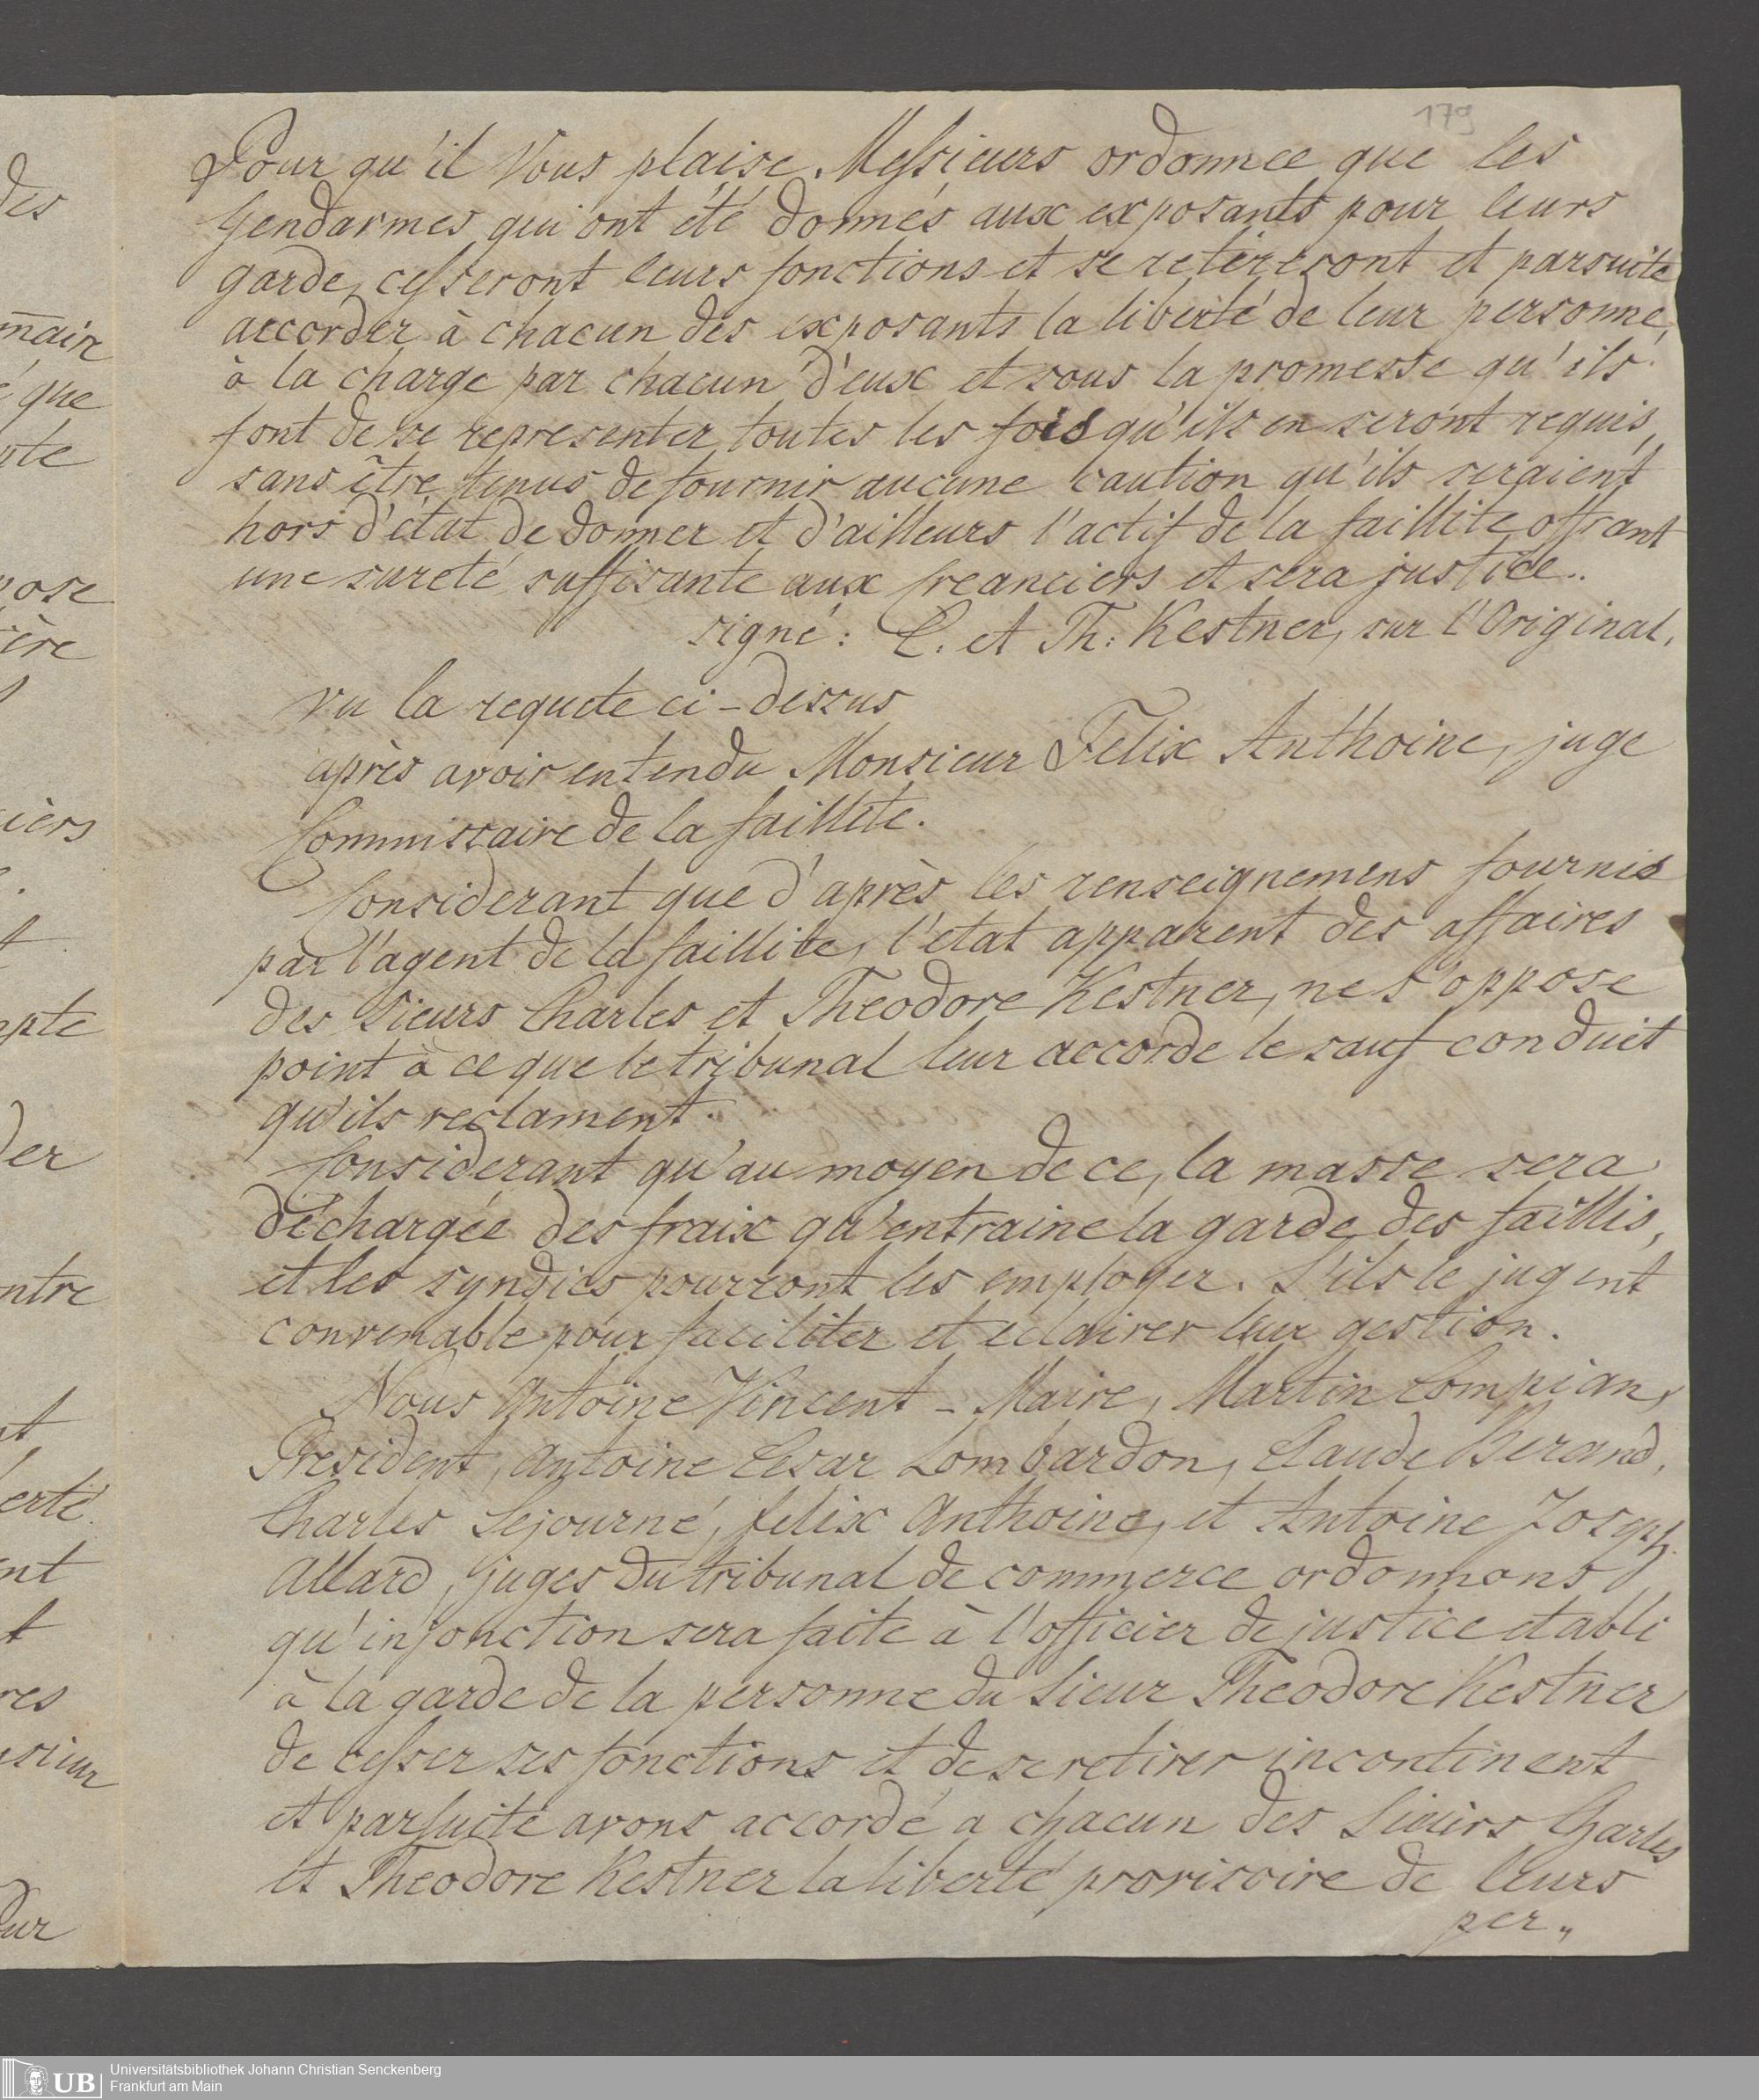 179
Pour qu'il Vous plaise Messieurs ordonnee que les
Gendarmes qui ont été donnés aux exposants pour leurs
garde, cesseront leurs fonctions et se retireront et parsuite
accorder à chacun des exposants la liberté de leur personne,
à la charge par chacun d'eux et sous la promesse qu'ils
font de se representer toutes les fois qu'ils en seront requis,
sans être tenus de fournir aucune caution qu'ils seraient
hors d'état de donner et d'ailleurs l'actif de la faillite offrant
une sureté suffisante aux Creanciers et sera justice..
signé: C. et Th: Kestner, sur l'Original.
vu la requete ci-dessus
après avoir entendu Monsieur Felix Anthoine, juge
Commissaire de la faillite.
Considerant que d'après les renseignemens fournis
par l'agent de la faillite, l'etat apparent des affaires
des Sieurs Charles et Theodore Kestner, ne s'oppose
point à ce que le tribunal leur accorde le sauf conduit
qu'ils reclament.
Considerant qu'au moyen de ce, la masse sera
déchargée des fraix qu'entraine la garde des faillis,
et les syndics pourront les employer. S'ils le jugent
convenable pour faciliter et eclairer leur gestion.
Nous Antoine Vincent - Maire, Martin Compian,
President, Antoine Cesar Lombardon, Claude Berand,
Charles Sejourné, felix Anthoine, et Antoine Joseph
Allard, juges du tribunal de commerce ordonnons
qu'injonction sera faite à l'officier de justice etabli
à la garde de la personne du Sieur Theodore Kestner
de cesser ses fonctions et de se retirer incontinent
et parsuite avons accordé a chacun des Sieurs Charles
et Theodore Kestner la liberté provisoire de leurs
per„
des
mair
que
ose
ière
iers
pte
der
ntre
erté
nt
res
sieur
dur
UB Universitätsbibliothek Johann Christian Senckenberg
Frankfurt am Main